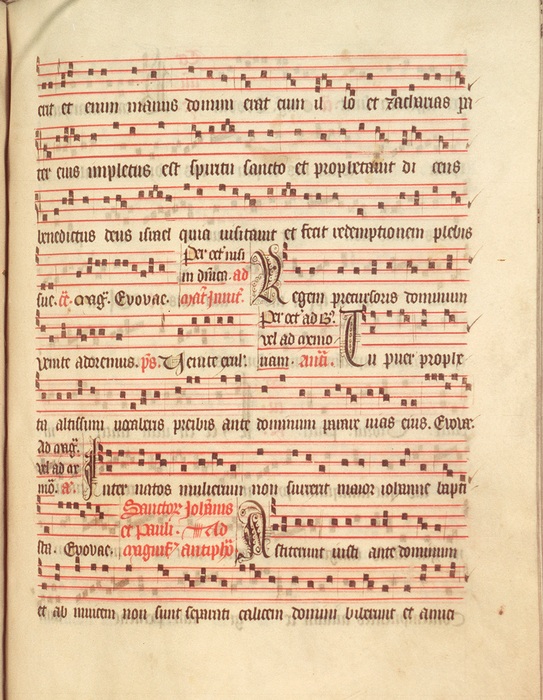 erit et enim manus domini erat cum il lo et zacharias pa
ter eius impletus est spiritu sancto et prophetauit di cens
benedictus deus israel quia uisitauit et fecit redemptionem plebis
Per oct' inuit'
in dnica. ad
sue. Magn. Evovae. Mat' Inuit'. Regem precursoris dominum
Per oct' ad
vel ad
venite adoremus. ps. Venite exul'. nam. ant. Tu puer prophe
ta altissimi vocaberis preibis ante dominum parare uias eius. Evovae.
Ad magn.
vel ad
mo. a. Inter natos mulierum non surrexit maior iohanne bapti
Sanctor Johannis
et Pauli. Ad
sta. Evovae. magnif. antipho Astiterunt iusti ante dominum
et ab inuicem non sunt separati calicem domini biberunt et amici